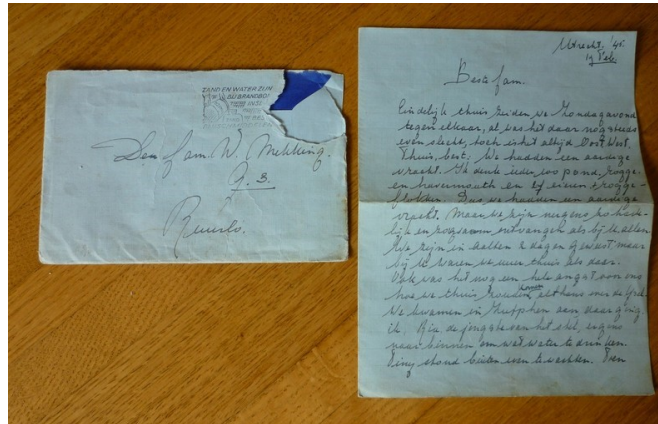 ZAND EN WATER ZIJN
BIJ BRAND
Den fam. W. Mekking.
Utrecht, '45.
19 Feb.
Beste fam.
Eindelijk thuis zeiden we Zondagavond
tegen elkaar, al was het daar nog steeds
even slecht, toch is het altijd Oost West.
Thuis, best. We hadden een aardige
vracht. Ik denk ieder 100 pond, rogge
en havermouth en eieren rogge-
Dus we hadden een aardige
vracht. Maar we zijn nergens zo harte-
lijk en ontvangen als bij U allen.
We zijn in Aalten 2 dagen geweest maar
bij U waren we meer thuis als daar.
Ook was het nog een hele angst voor ons
hoe we thuis zouden komen althans over de
We kwamen in Zutphen aan daar ging
ik, de jongste van het stel, ergens
naar binnen om wat water te drinken.
Tiny stond buiten even te wachten. Toen